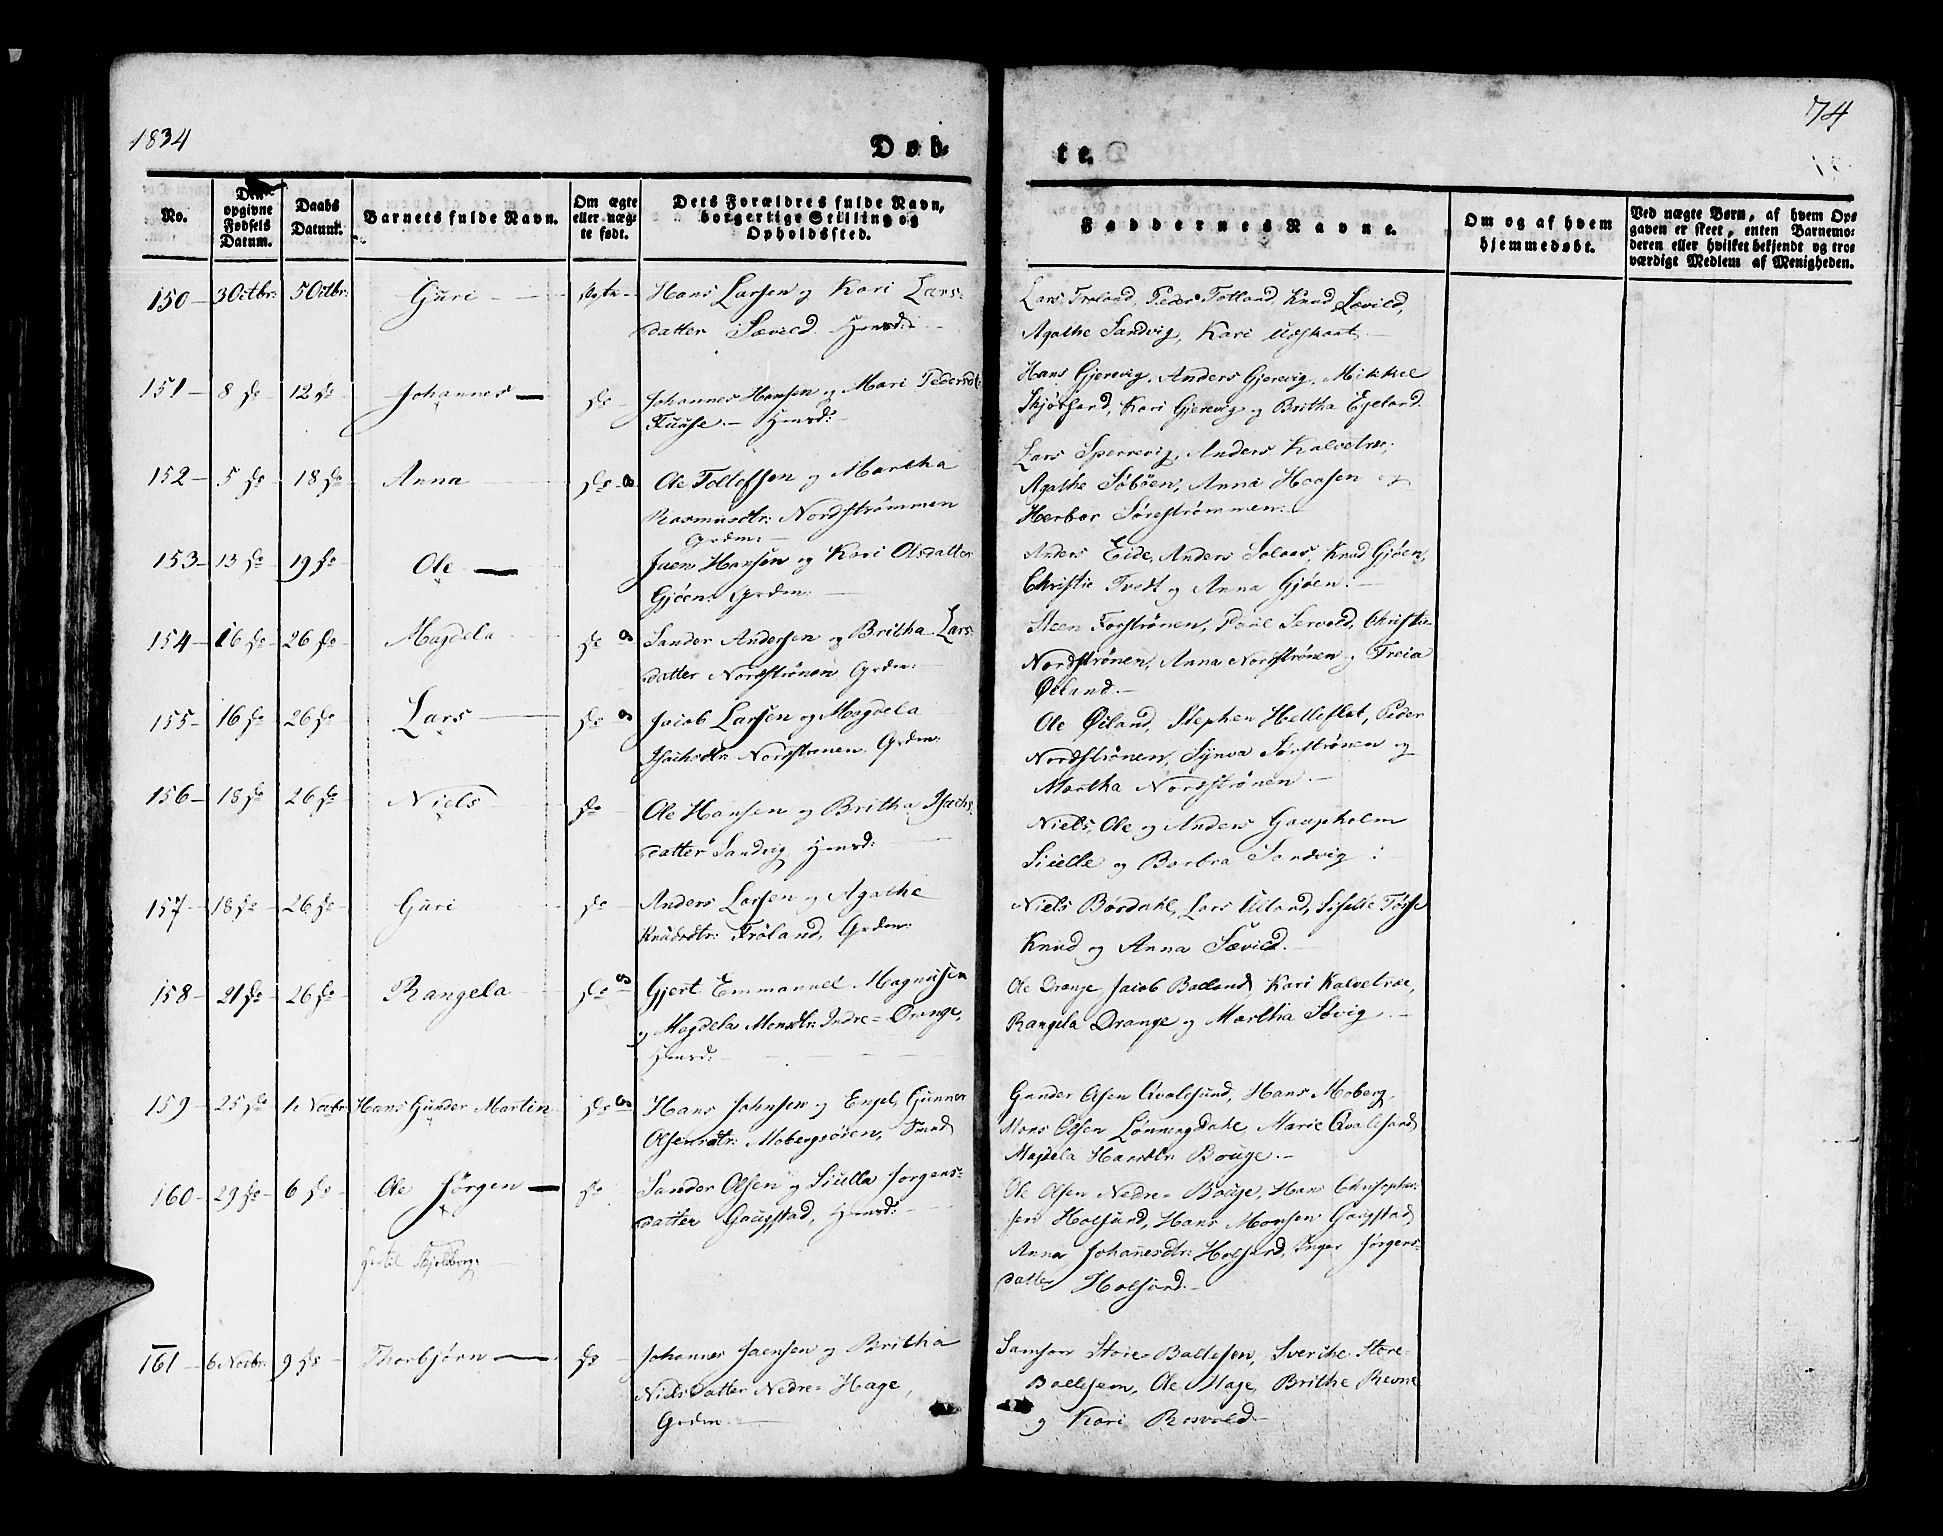 1834
74
Døb-
te.
No.
Den opgivne Fødsels Datum.
Daabs Datum.
Barnets fulde Navn.
Om ægte eller uæg-
te født.
Dets Forældres fulde Navn,
borgerlige Stilling og
Opholdssted.
Faddernes Navne.
Om og af hvem
hjemmedøbt.
Ved uægte Børn, af hvem Op-
gaven er skeet, enten Barnemo-
deren eller hvilket bekjendt og tro-
værdigt Medlem af Menigheden.
150 3 Octbr: 5 Octbr: Guri Ægte Hans Larsen og Kari Lars-
datter Sævild. Huusd:
Lars Frøland, Peder Totland, Knud Sævild,
Agathe Sandvig, Kari Udskaat
151 8 do 12 do Johannes do Johannes Hansen og Mari Pedersdt:
Fuuse. Huusd:
Hans Gjerevig, Anders Gjerevig, Mikkel
Skjørsand, Kari Gjerevig og Britha Egeland.
152 5 do 18 do Anna do Ole Tollefsen og Martha
Rasmusdtr: Nordstrømmen
Grdm:
Lars Sperrevig, Anders Kalvetræ,
Agathe Søbøen, Anna Haasen og
Herbor Sørestrømmen.
153 13 do 19 do Ole Juen Hansen og Kari Olsdatter
Gjøen. Grdm:
Anders Eide, Anders Solaas, Knud Gjøen,
Christie Tvedt og Anna Gjøen.
154 16 do 26 do Magdela do Sander Andersen og Britha Lars-
datter Nordstrønen Grdm:
Steen Forstrønen, Poul Servold, Christie
Nordstrønen, Anna Nordstrønen og Freia
Øeland.
155 16 do 26 do Lars do Jacob Larsen og Magdela
Isachsdtr: Nordstrønen, Grdm:
Ole Øiland, Stephen Helleflot, Peder
Nordstrønen, Synva Sørstrønen og
Martha Nordstrønen.
156 18 do 26 do Niels do Ole Hansen og Britha Isachs-
datter Sandvig Huusd:
Niels, Ole og Anders Gaupholm
Siselle og Barbra Sandvig
157 18 do 26 do Guri do Anders Larsen og Agathe
Knudsdtr: Frøland, Grdm:
Niels Børdahl, Lars Øiland, Siselle Tøsse
Knud og Anna Sævild.
158 21 do 26 do Rangela do Gjert Emmanuel Magnusen
og Magdela Monsdtr: Indre-Drange,
Huusd:
Ole Drange Jacob Boeland, Kari Kalvetræe,
Rangela Drange og Martha Søvig.
159 25 do 1 Novbr Hans Gunder Martin do Hans Johnsen og Engel Gunner
Olsensdtr: Mobergsøien, Smed
Gunder Olsen Qvalesund, Hans Moberg,
Mons Olsen Lønningdahl Marie Qvalesund
Magdela Hansdtr: Bouge.
160 29 do 6 do Ole Jørgen do Sander Olsen og Siella Jørgens-
datter Gaugstad, Huusd:
Ole Olsen Nedre-Bouge, Hans Christopher-
sen Holsund, Hans Monsen Gaugstad
Anna Johannesdtr: Holsund, Inger Jørgens-
datter Holsund.
161 6 Novbr: 9 do Thorbjørn do Johannes Jaensen og Britha
Nielsdatter Nedre-Hage,
Grdm
Samson Store-Ballesen, Sverike Store-
Ballesem, Ole Hage, Brithe Revne
og Kari Rosvold